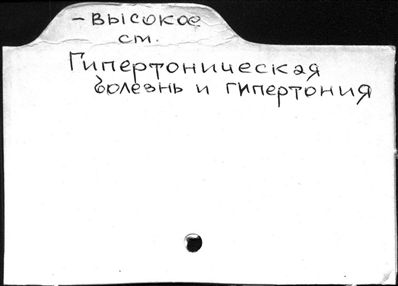 -высокое
см.
Гипертоническая
болезнь и гипертония